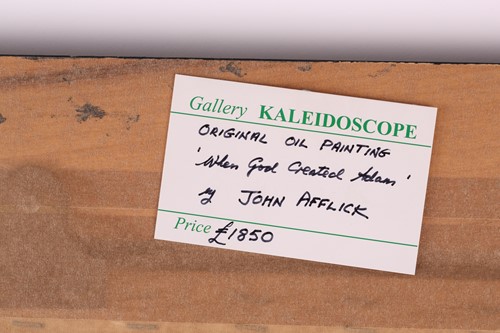 Gallery KALEIDOSCOPE
ORIGINAL OIL PAINTING
'When God Created Adam'
by JOHN AFFLICK
Price £1850